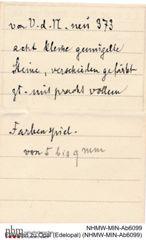 von V.d.N. neü 373
acht kleine gemugelte
Steine, verschieden gefärbt
zt. mit pracht vollem
Farbenspiel.
von 5 bis 9 mm
nhm
Etiketten zu Opal (Edelopal) (NHMW-MIN-Ab6099)
NHMW-MIN-Ab6099